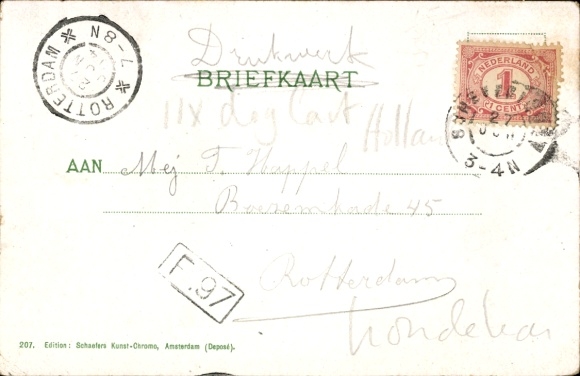 ROTTERDAM 7-8N
Drukwerk
NEDERLAND
1
CENT
BRIEFKAART
11x day Cart Holland
27
3-4N
AAN Mej F. Huppel
Boezemkade 45
Rotterdam
F.97
207. Edition: Schaefers Kunst-Chromo, Amsterdam (Deposé).